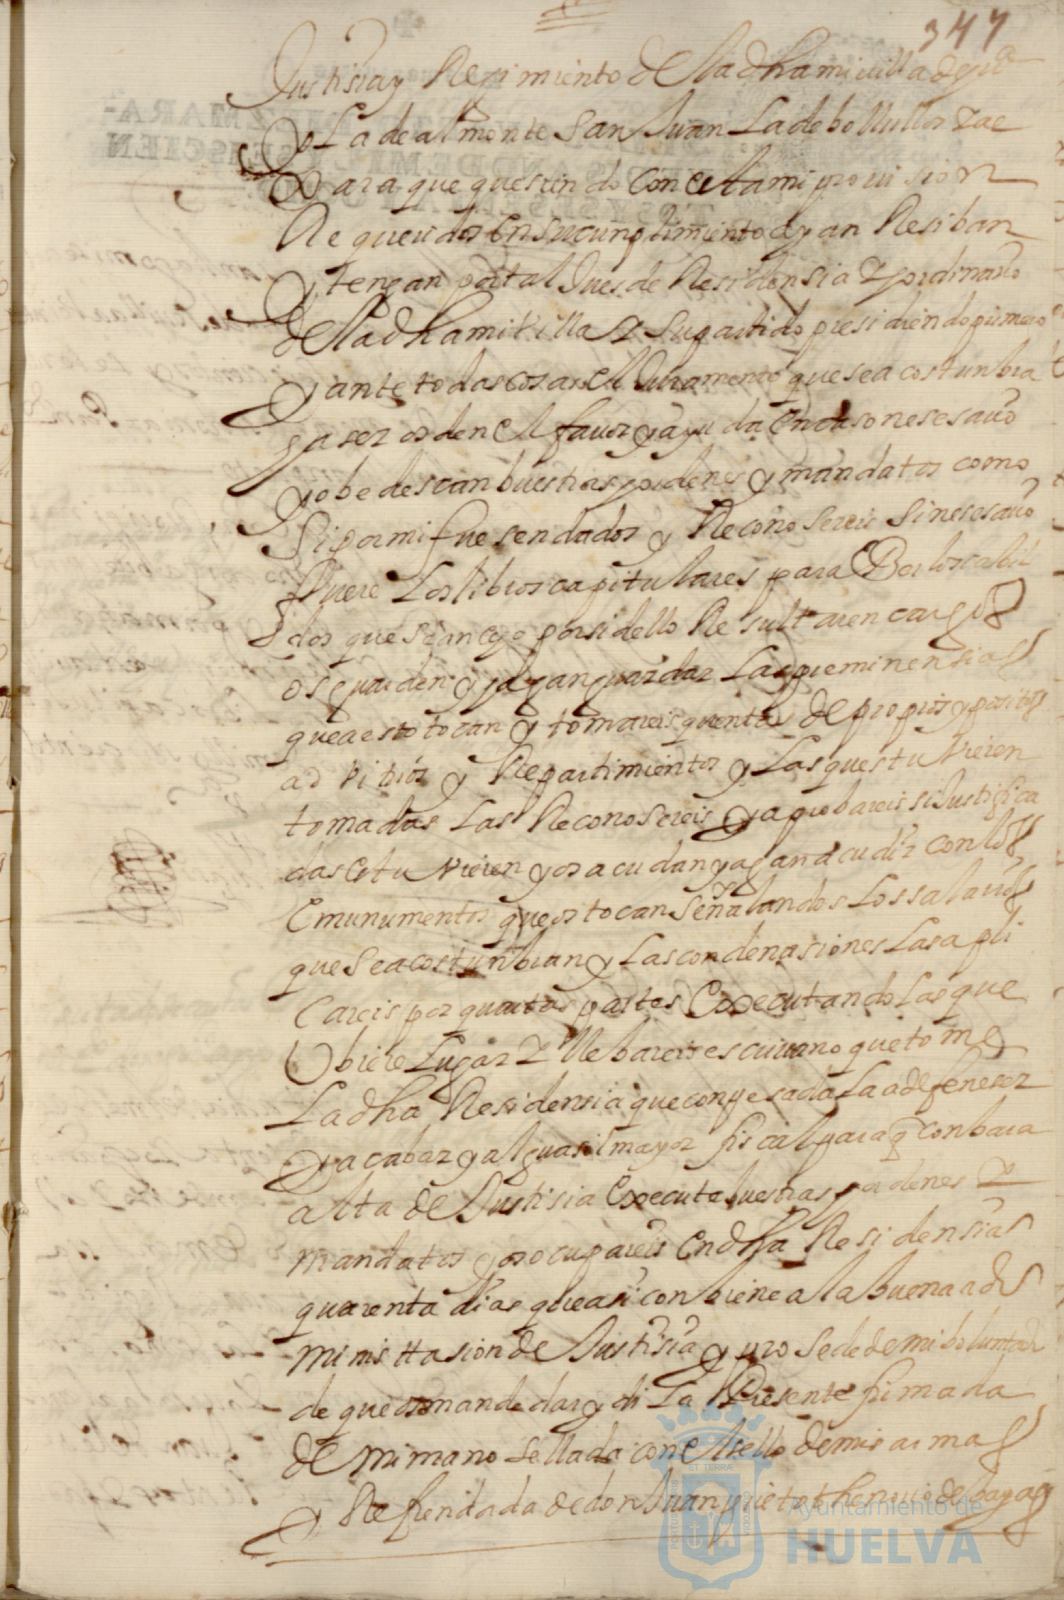 347
Justisia y Rejimiento de la dha mi villa de
La de almonte San Juan La de bollullos Y a
Para que queriendo con esta mi provision
Requeridos en su cunplimiento ayan Resiban
y tengan por tal Jues de Residensia Y ordinario
de la dha mi Villa Y su partido presidiendo primero
y ante todas cosas el Juramento que se acostunbra
haser os den el favor y ayuda en caso nesesario
y obedescan buestras hordenes y mandatos como
Si por mi fuesen dados y Reconosereis Si nesesario
fuere Los libros capitulares para Ber los cabil
dos que Sean y si dello Resultaren cargos
os guarden y hagan guardar Las preminensias
que a esto tocan y tomareis quentas de propios y positos
adbitrios y Repartimientos y Las que estuvieren
tomadas Las Reconosereis y aprobareis si Justifica
das estuvieren y os acudan y agan acudir con los
Emunumentos que os tocan Señalandos Los salarios
que Se acostunbran y Las condenasiones Las apli
careis por quartas partes Executando Las que
Ubiere Lugar Y llebareis escrivano que tome
La dha Residensia que conpesada La a de feneser
y acabar y alguasil mayor fiscal para q con bara
alta de Justisia Execute buestras hordenes Y
mandatos y os ocupareis En dha Residensias
quarenta dias que asi conbiene a la buena ad
ministrasion de Justisia y pro sede de mi boluntad
de que os mande dar y di La Presente firmada
de mi mano Sellada con el sello de mis armas
y Refrendada de don Juan prieto thenorio de
Ayuntamiento de
HUELVA